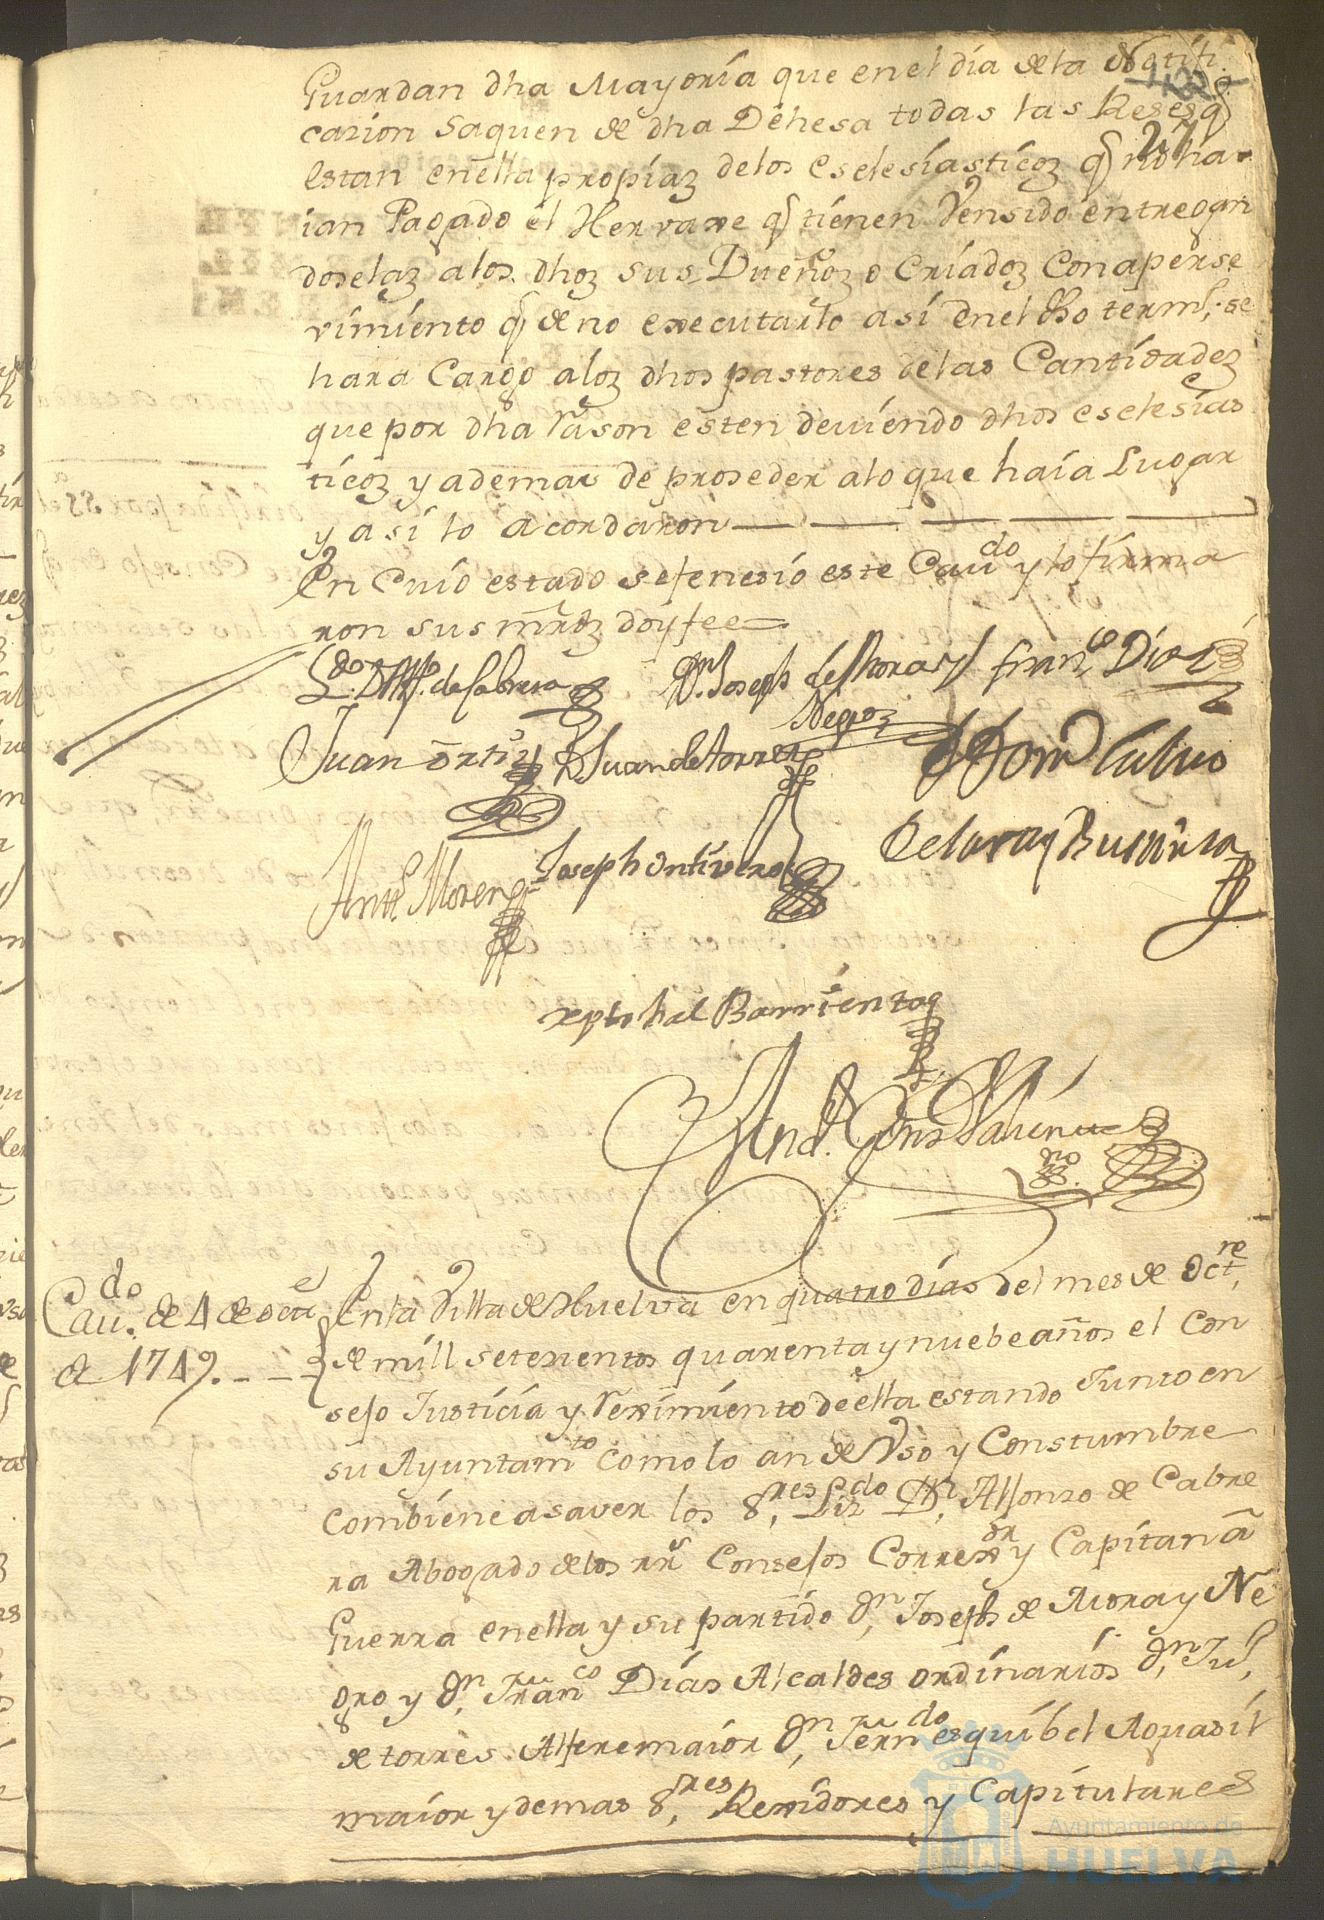 Guardan dha Mayoría que en el día de la Notifi
carion saquen de dha Dehesa todas las Reses q
estan en ella propiaz de los eselesiasticoz q no ha
ian Pagado el Hervaxe q tienen Vensido entregan
doselaz a los dhoz sus Dueñoz o Criadoz con aperse
vimiento q de no executarlo así en el dho term.º se
hara Cargo a loz dhos pastores de las Cantidadez
que por dha Rason esten deviendo dhos eselesias
ticoz y ademas de proseder a lo que haia Lugar
y así lo acordaron
En Cuio estado se fenesio este Cavdo y lo firma
ron sus mrdz doy fee
Ldo. D. Alfº. de Cabrera Dn. Joseph de Mora y Franco Diaz
Negro
Juan Ortiz D Juan de torres D Domº Calvo
Joseph Ontivero
Antº Moreno
xptobal Barrientos
no
Cavdo. de 4 de octe
de 1749.
En la Villa de Huelva en quatro días del mes de Octre,
de mill setesientos quarenta y nuebe años el Con
sejo Justicia y Reximiento de ella estando Junto en
su Ayuntamto como lo an de Vso y Constumbre
Combiene a saver los Sres, Lizdo Dn, Alfonso de Cabre
ra Abogado de los rrs Consejos Correxor y Capitan a
Guerra en ella y su partido Dn, Joseph de Mora y Ne
gro y Dn, Franco Días Alcaldes ordinarios Dn, Jul,
de torres Alferemaior Dn, Ferndo esquibel Aguasil
maior y demas Sres, Rexidores y Capitulares
Ayuntamiento de
HUELVA